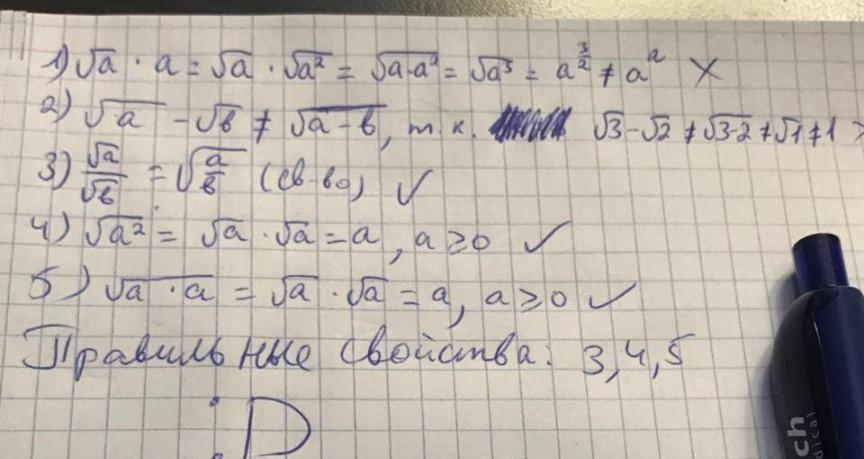 1) √a · a = √a · √a² = √a·a² = √a³ = a^(3/2) ≠ a² ×
2) √a - √b ≠ √a-b, т.к. √3 - √2 ≠ √3-2 ≠ √1 ≠ 1
3) √a/√b = √(a/b) (св-во) ✓
4) √a² = √a · √a = a, a ≥ 0 ✓
5) √a · a = √a · √a = a, a ≥ 0 ✓
Правильные свойства: 3,4,5
:D
ch
dical